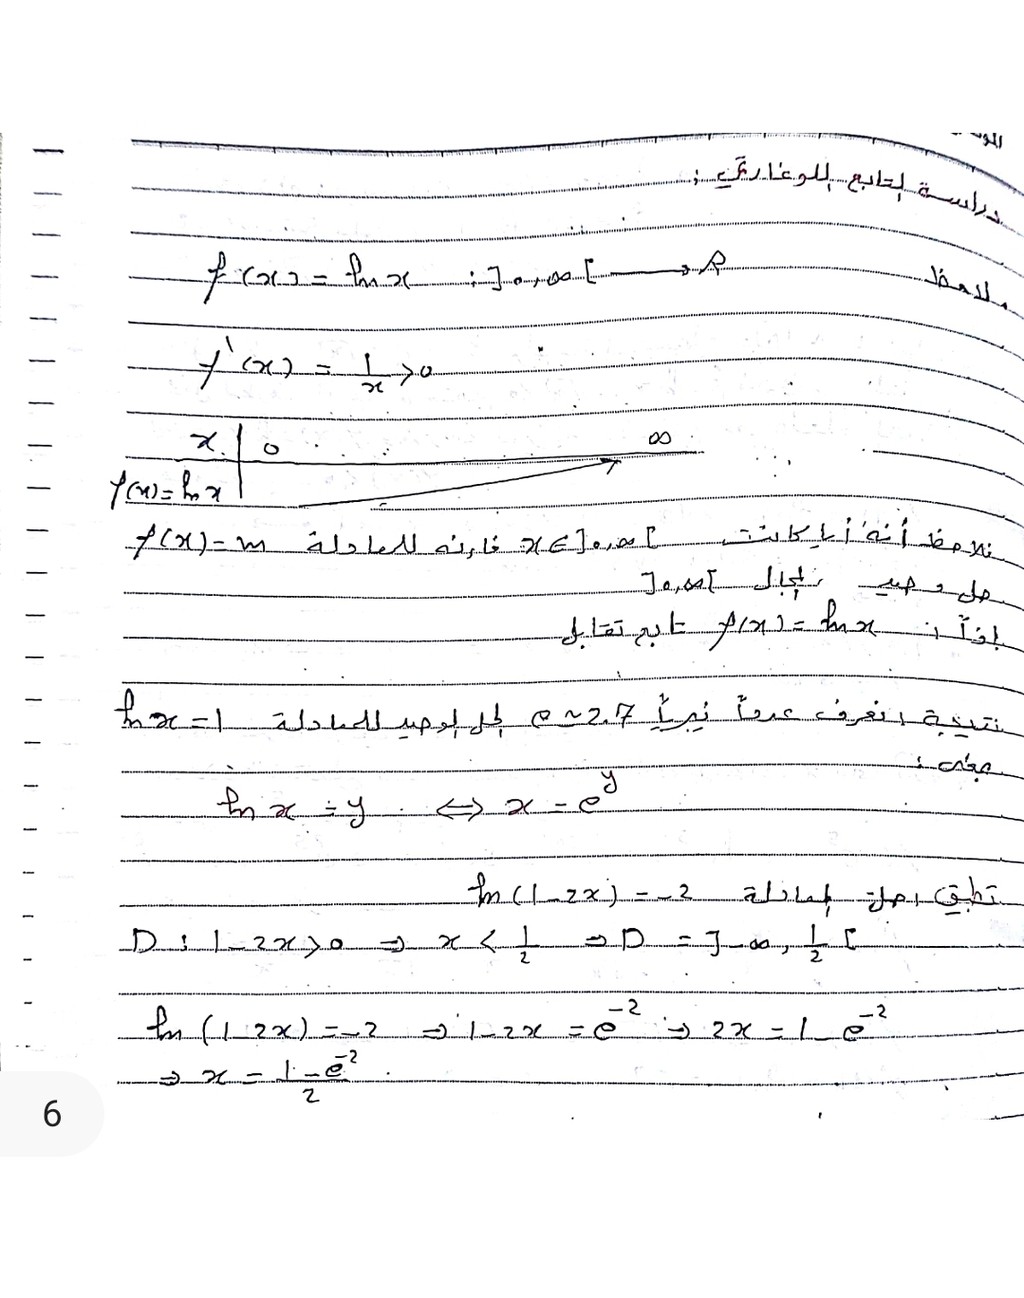 دراسة التابع اللوغاريتمي :
ملاحظة
f(x) = ln x : ]0,∞[ → R
f'(x) = 1/x > 0
x | 0 ∞
f(x) = ln x
نلاحظ أنه أيا كانت x ∈ ]0,∞[ فإنه للمعادلة f(x) = m
حل وحيد بالمجال ]0,∞[
إذاً : f(x) = ln x تابع تقابل
نتيجة : نعرف عدداً نيبرياً e ~ 2.7 الحل الوحيد للمعادلة ln x = 1
بمعنى :
ln x = y ⇔ x = e^y
تطبيق : حل المعادلة ln(1-2x) = -2
D : 1-2x > 0 ⇒ x < 1/2 ⇒ D = ]-∞, 1/2[
ln(1-2x) = -2 ⇒ 1-2x = e^-2 ⇒ 2x = 1-e^-2
⇒ x = 1-e^-2 / 2
6